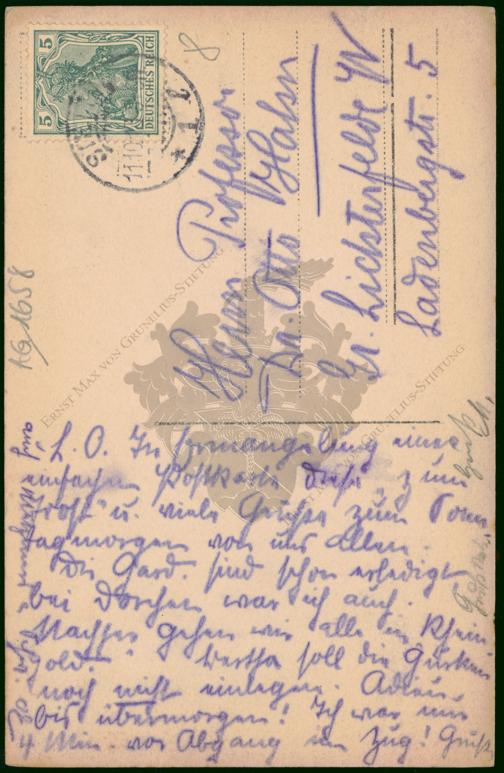 DEUTSCHES REICH
5
5
11.10
8
Herrn Professor
Dr. Otto Hahn
Gr. Lichterfelde W
Ladenbergstr. 5
AG1658
ERNST MAX VON GRUNELIUS-STIFTUNG
ERNST MAX VON GRUNELIUS-STIFTUNG
L. O. In Ermangelung einer
einfachen Postkarte diese zum
Trost u. viele Grüße zum Sonn-
tagmorgen von uns Allen.
Die Gard. sind schon erledigt
bei Dorchen war ich auch.
Nachher gehen wir alle in Rhein-
gold. Bertha soll die Gurken
noch nicht einlegen. Adieu
bis übermorgen! Ich war nur
4 Min. vor Abgang im Zug! Gruß
auf